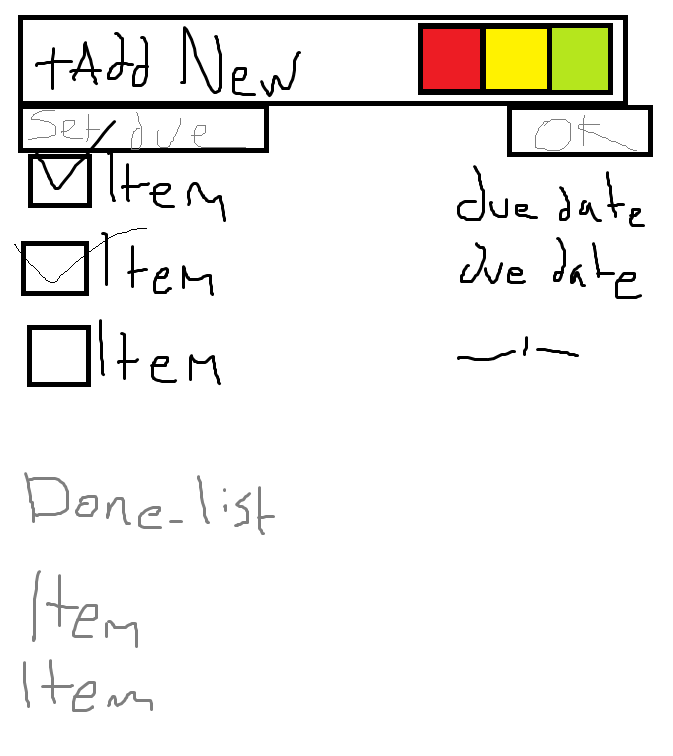 +Add New
Set/due OK
Item due date
Item due date
Item
Done_list
Item
Item